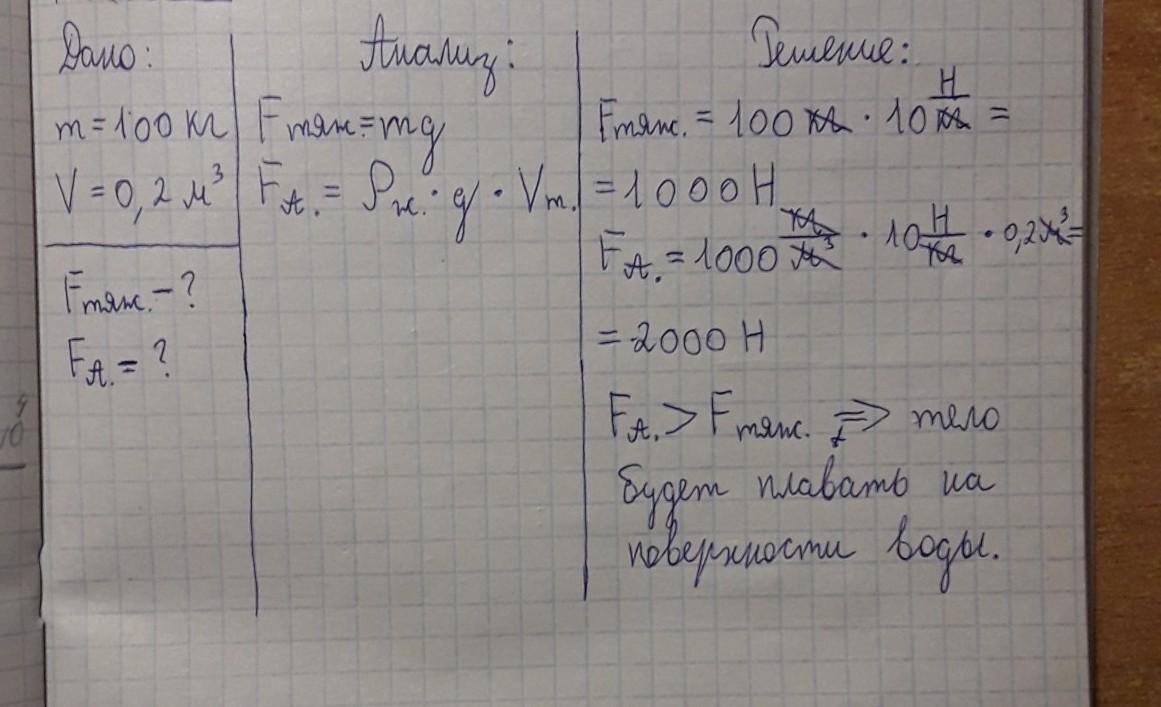 Дано:
m = 100 кг
V = 0,2 м³
Fтяж. – ?
FА. = ?
Анализ:
Fтяж. = mg
FА. = ρж. · g · Vт.
Решение:
Fтяж. = 100 кг · 10 Н/кг =
= 1000 Н
FА. = 1000 кг/м³ · 10 Н/кг · 0,2 м³ =
= 2000 Н
FА. > Fтяж. ⇒ тело
будет плавать на
поверхности воды.